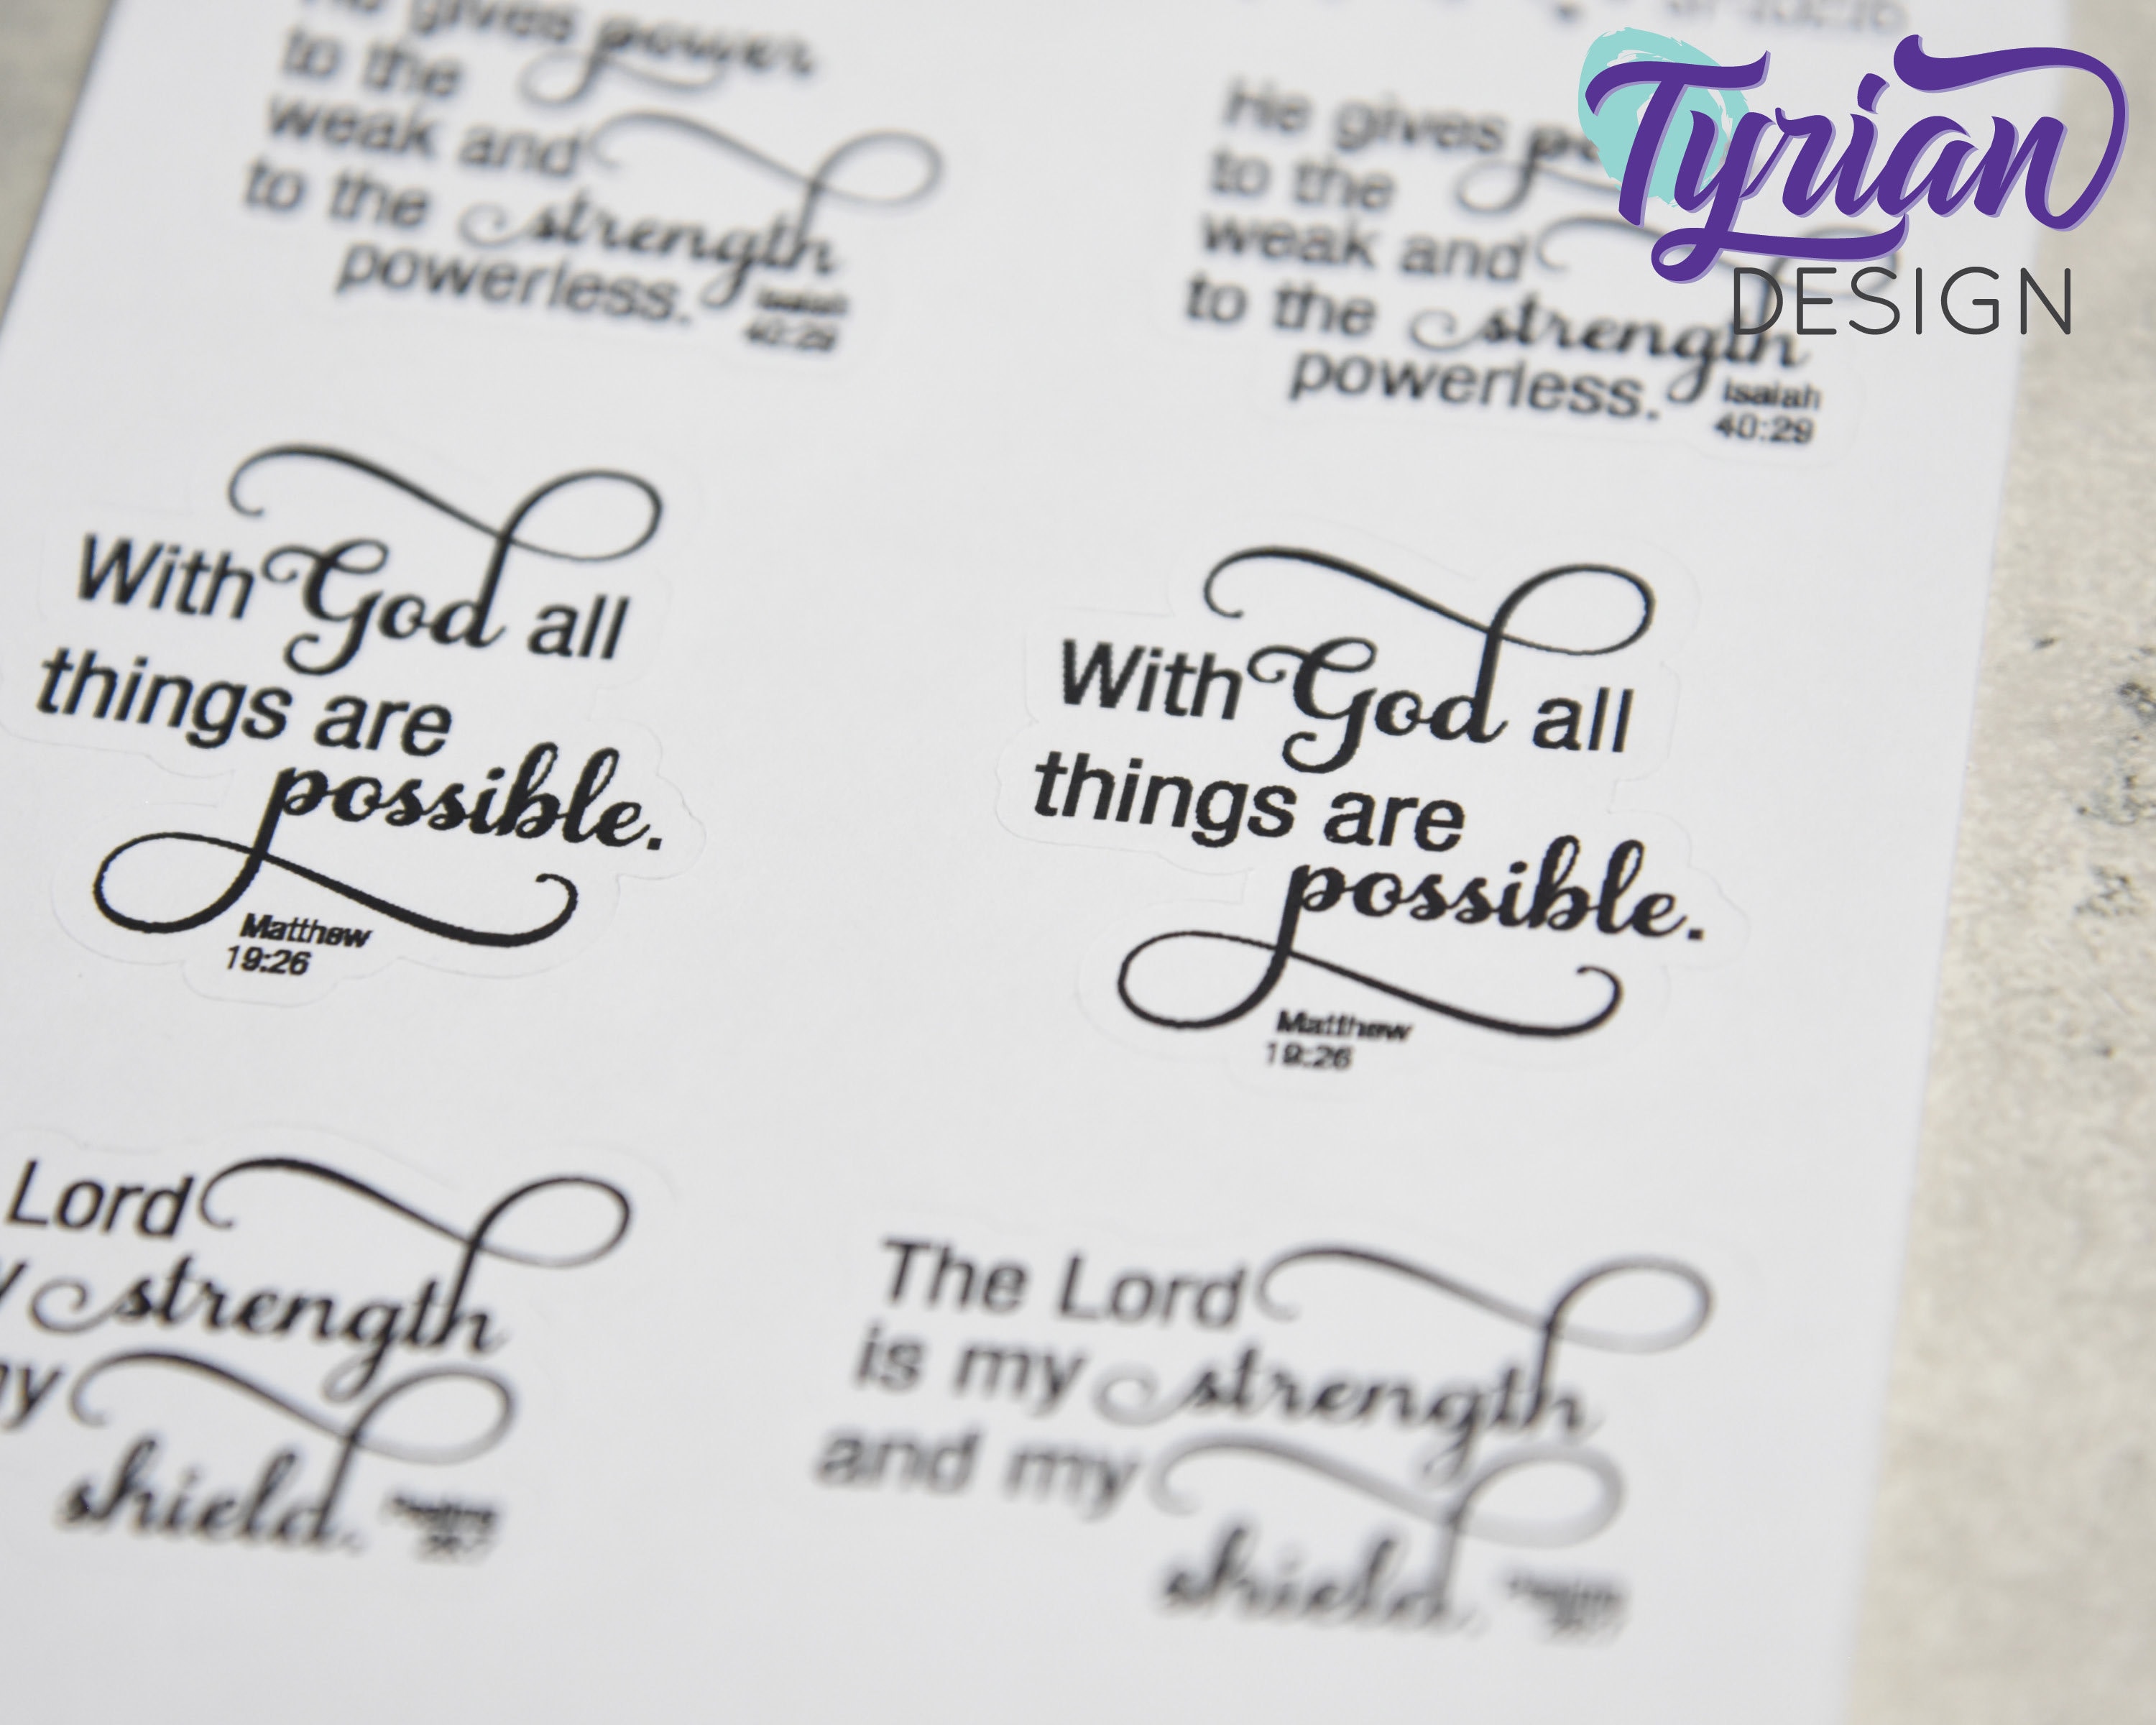 He gives power
to the
weak and
to the strength
powerless.
Isaiah
40:29
He gives
to the
weak and
to the strength
powerless.
Isaiah
40:29
Tyrian
DESIGN
With God all
things are
possible.
Matthew
19:26
With God all
things are
possible.
Matthew
19:26
Lord
strength
shield.
The Lord
is my strength
and my
shield.